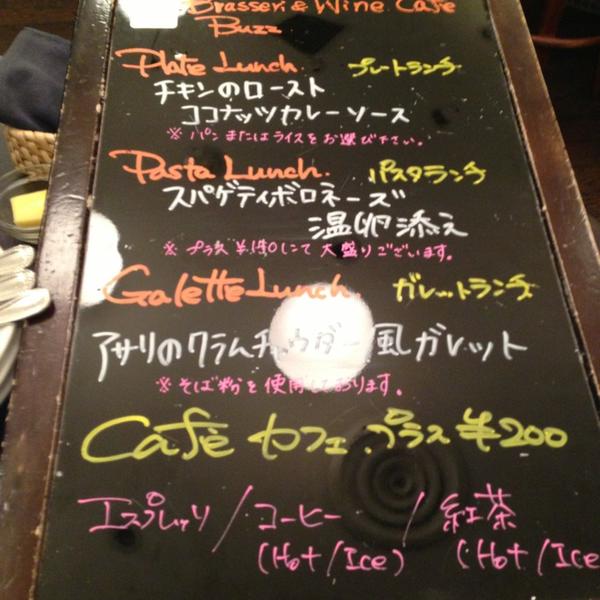 Brasseri & Wine Cafe
Buzz
Plate Lunch. プレートランチ
チキンのロースト
ココナッツカレーソース
※ パン または ライスをお選び下さい。
Pasta Lunch. パスタランチ
スパゲティボロネーズ
温卵添え
※ プラス ¥140にて 大盛りございます。
Galette Lunch. ガレットランチ
アサリのクラムチャウダー風ガレット
※ そば粉を使用しております。
Cafè カフェ プラス ¥200
エスプレッソ / コーヒー / 紅茶
(Hot / Ice) (Hot / Ice